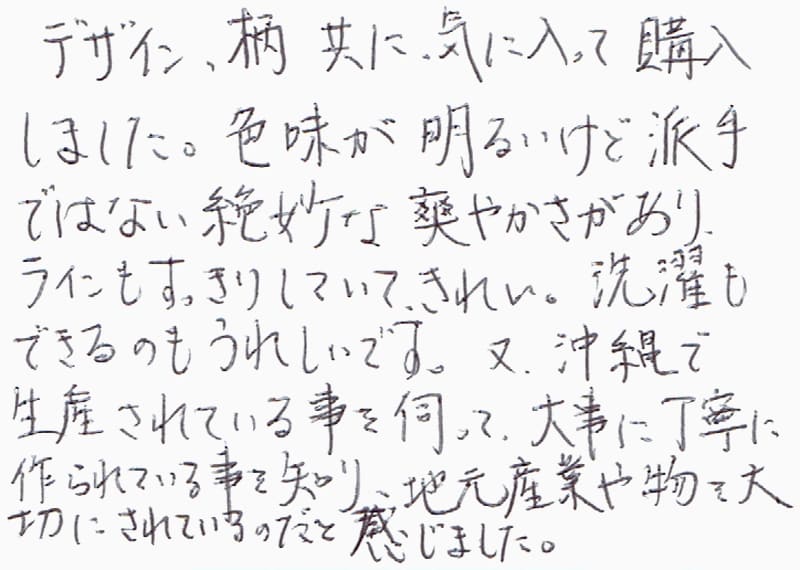 デザイン、柄 共に、気に入って 購入
しました。色味が 明るいけど 派手
ではない 絶妙な 爽やかさがあり、
ラインもすっきりしていて、きれい。洗濯も
できるのもうれしいです。又、沖縄で
生産されている事を伺って、大事に丁寧に
作られている事を知り、地元産業や物を大
切にされているのだと感じました。